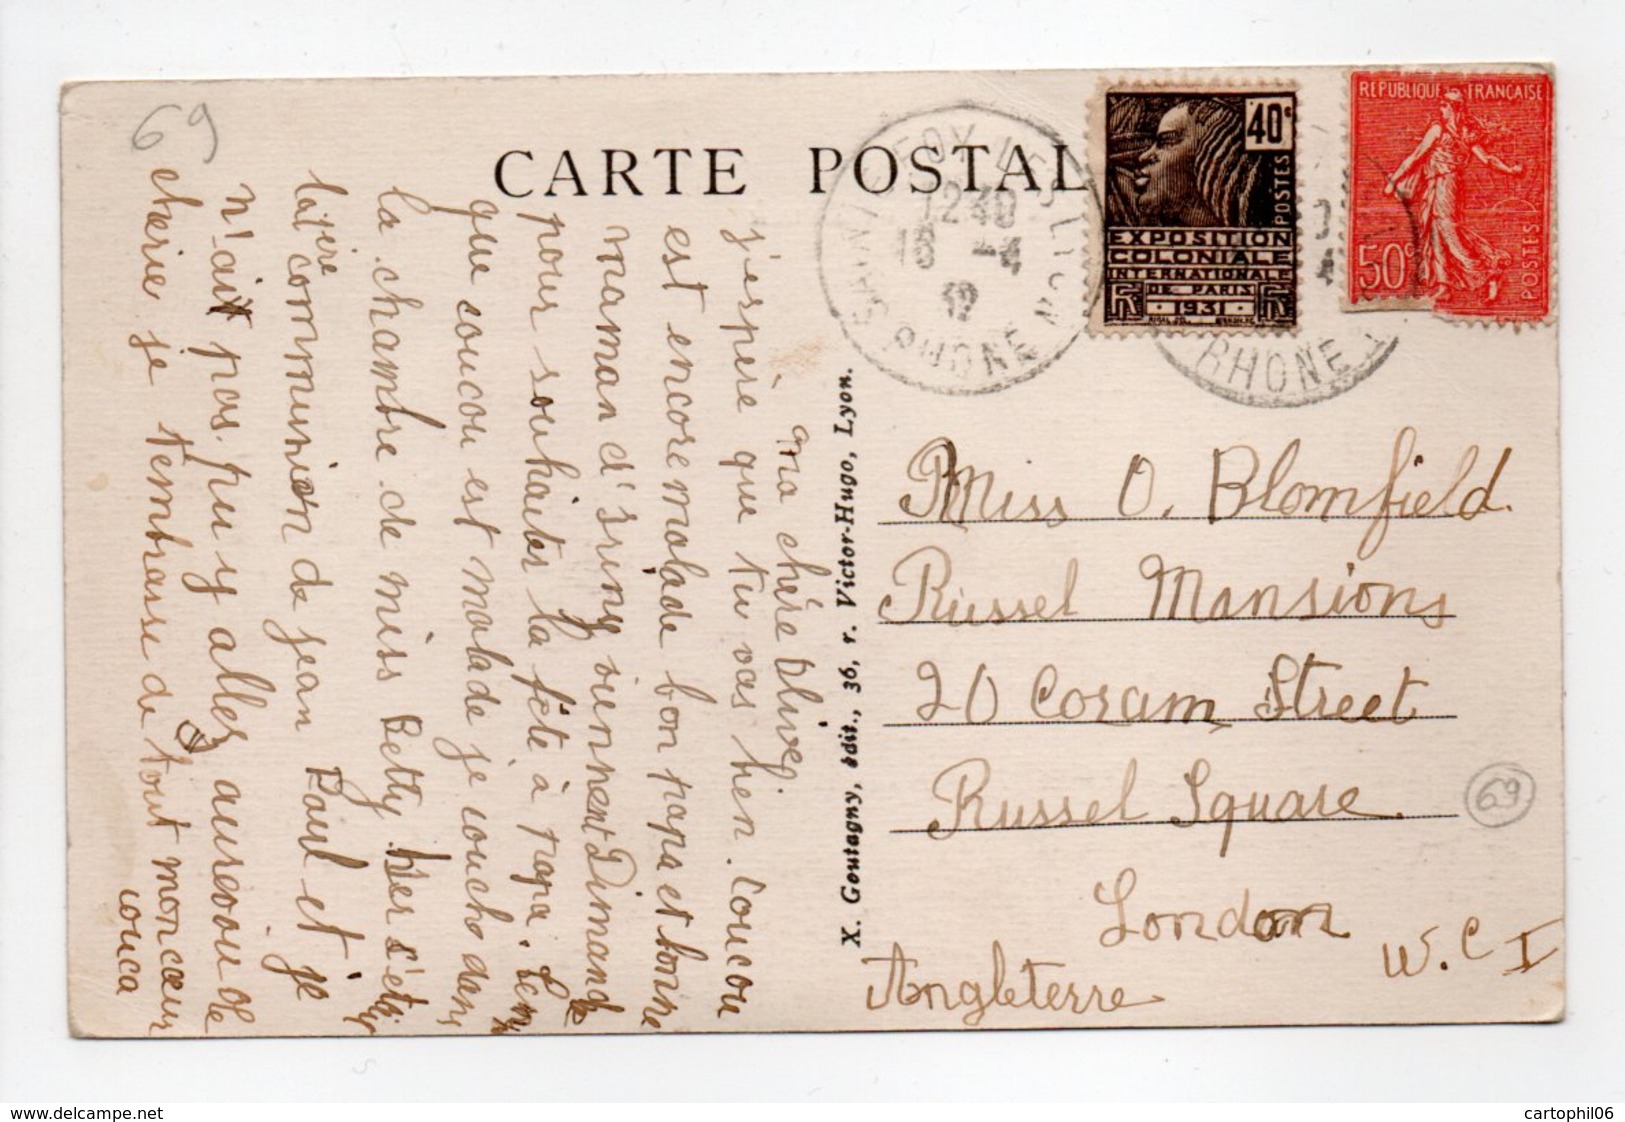 69
CARTE POSTALE
RÉPUBLIQUE FRANÇAISE
50c
POSTES
40c
POSTES
EXPOSITION
COLONIALE
INTERNATIONALE
DE PARIS
1931
12 30
18 -4
32
RHONE
RHONE
ma chère Olive
j'espère que tu vas bien. Coucou
est encore malade bon papa et bonne
maman d' viennent Dimanche
pour souhaiter la fête à papa.
que coucou est malade je couche dans
la chambre de miss Betty hier s'était
la 1ère communion de jean Paul et je
n'ait pas pu y aller, aurevoir Ole
cherie je t'embrasse de tout mon cœur
couca
X. Goutagny, édit., 36, r. Victor-Hugo, Lyon.
Miss O. Blomfield.
Russel Mansions
20 Coram Street
Russel Square
London
W.C I
Angleterre
69
delcampe.net
cartophil06